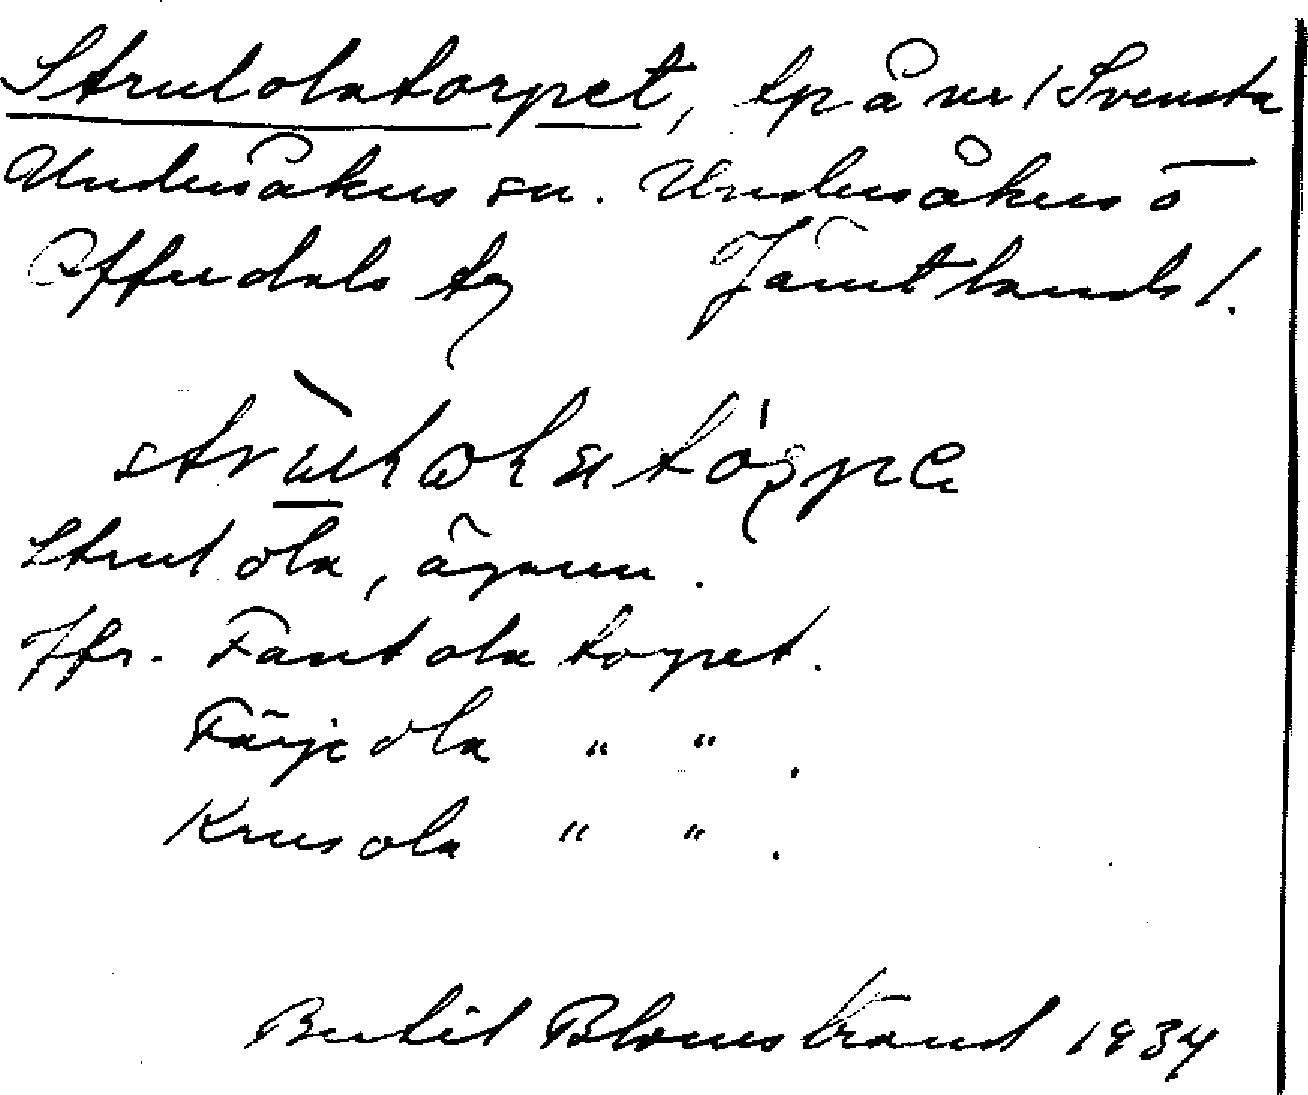 Strutolatorpet, tp å ver / Svensta
Undersåkers sn. Undersåkers o
Offerdals tg Jämtlands l.
Strutola, ägaren.
Jfr. Fantolatorpet.
Färjeola " " .
Krusola " " .
Bertil Blomstrand 1934